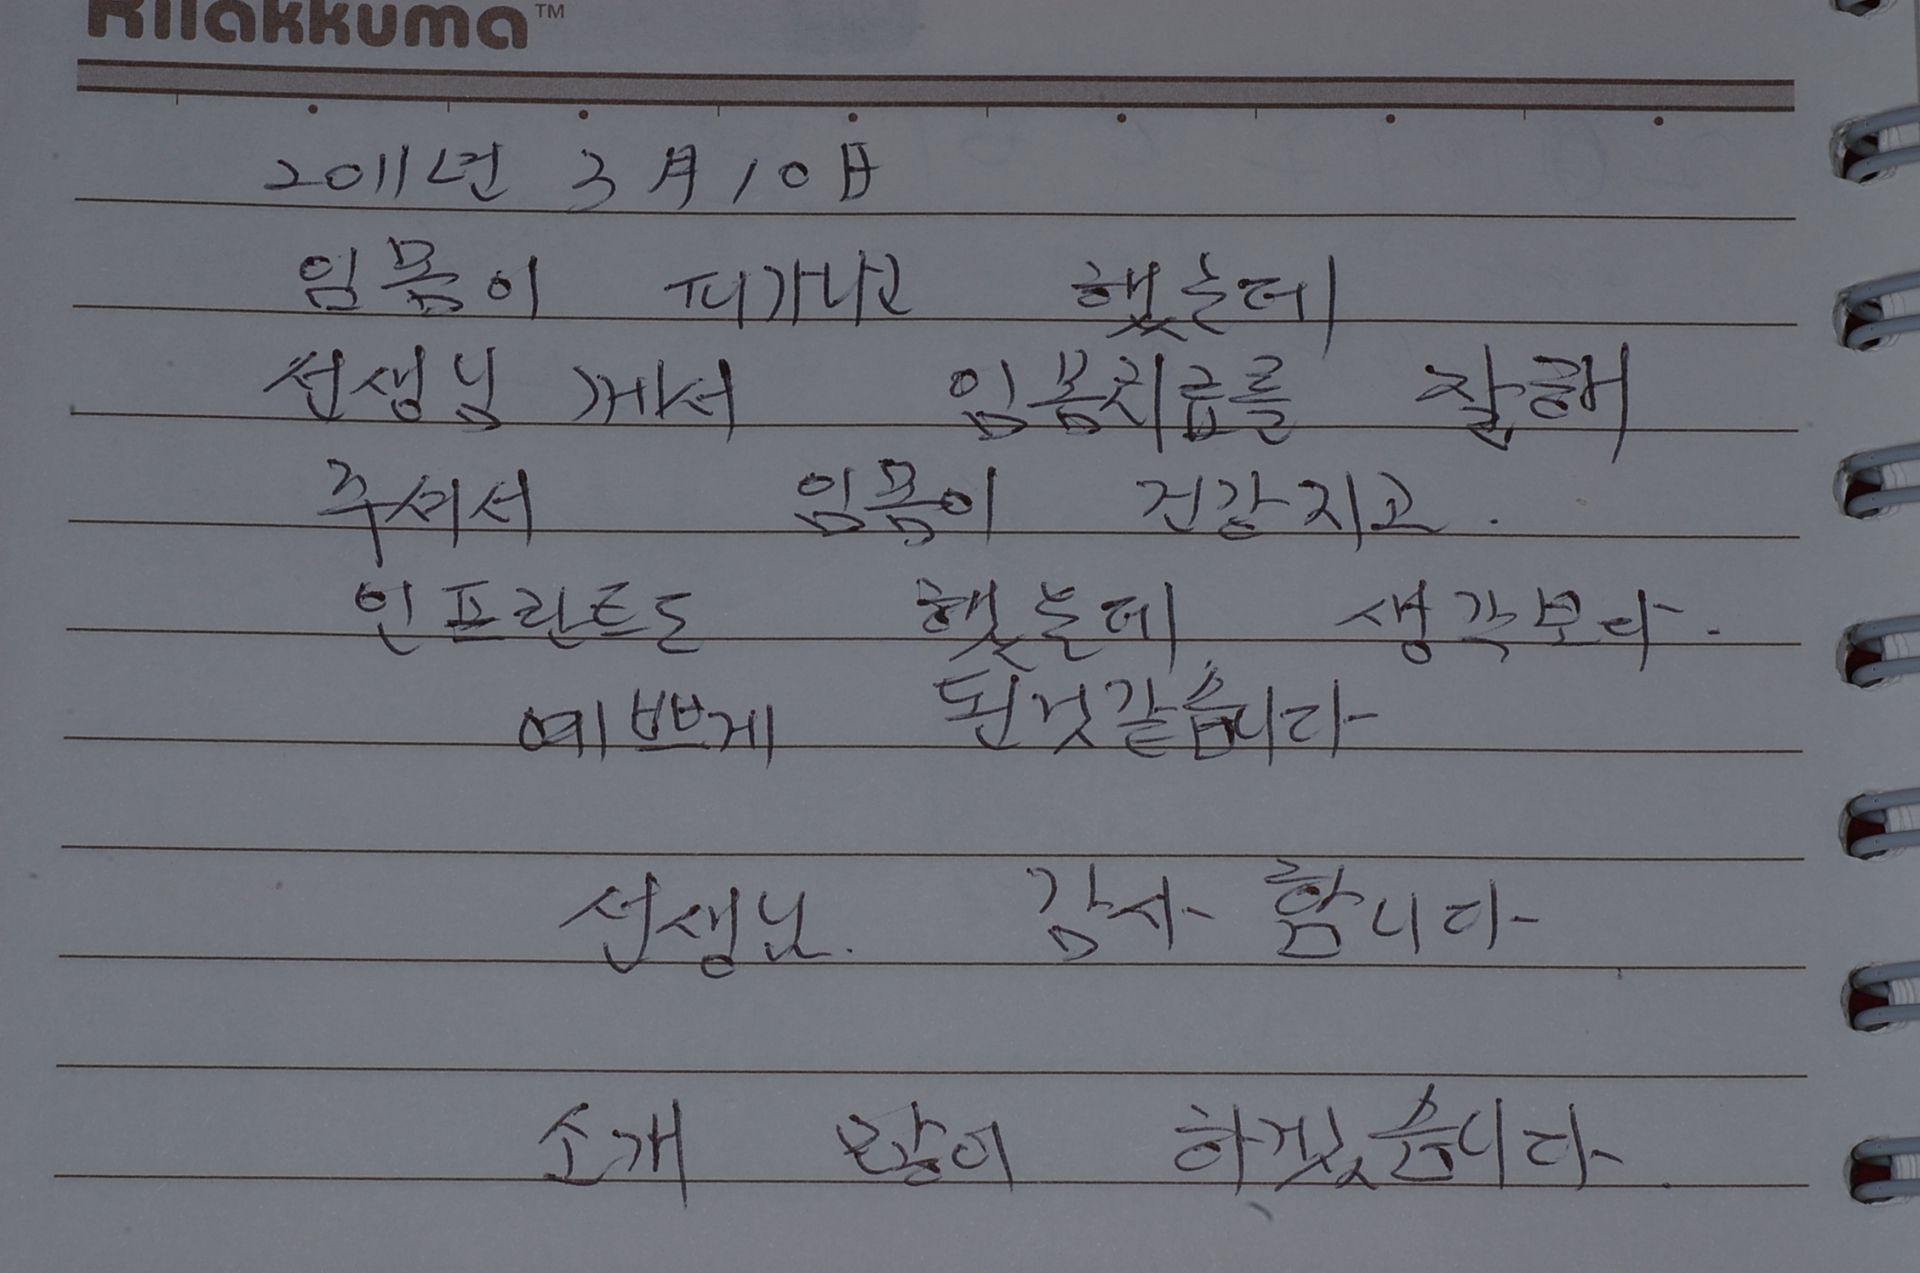 Rilakkuma™
2011년 3月 10日
임몸이 피가나고 했는데
선생님 게서 임몸치료를 잘해
주셔서 임몸이 건강지고.
인프란트도 했는데 생각보다.
예쁘게 된것같습니다
선생님. 감사 합니다
소개 많이 하겠습니다.